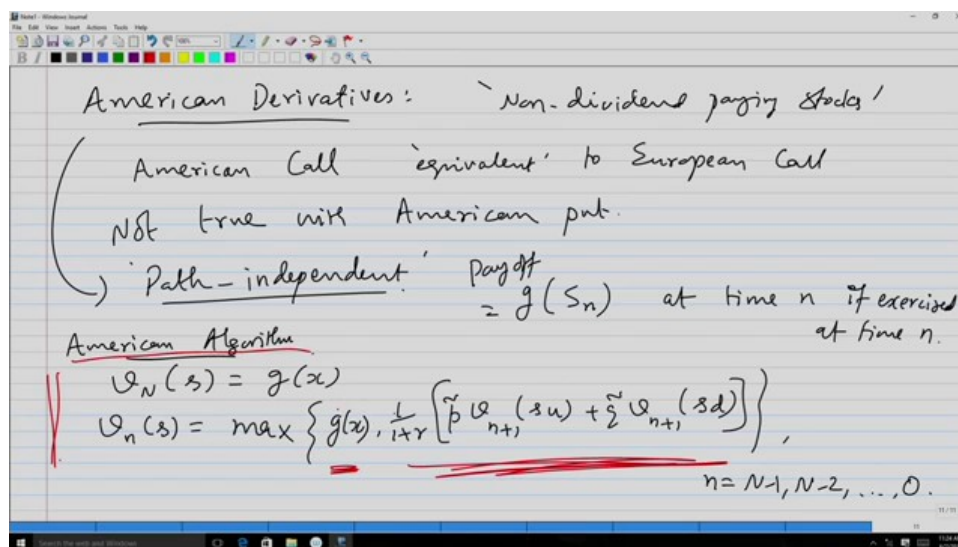 Note1 - Windows Journal
File Edit View Insert Actions Tools Help
100%
B I
American Derivatives: 'Non-dividend paying stocks'
American Call 'equivalent' to European Call
Not true with American put.
'Path-independent' payoff
= g(Sn) at time n if exercised
at time n.
American Algorithm
υ_N(s) = g(x)
υ_n(s) = max { g(x), 1/(1+r) [ p̃ υ_{n+1}(su) + q̃ υ_{n+1}(sd) ] },
n = N-1, N-2, ..., 0.
11 / 11
11
Search the web and Windows